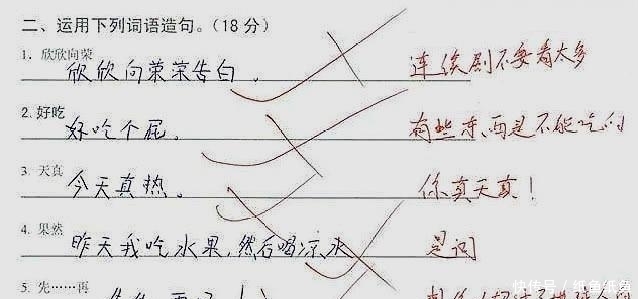 二、运用下列词语造句。(18分)
1. 欣欣向荣
欣欣向荣荣告白。 连续剧不要看太多
2. 好吃
好吃个屁。 有些东西是不能吃的
3. 天真
今天真热。 你真天真!
4. 果然
昨天我吃水果,然后喝凉水 是词
5. 先……再
快传号/